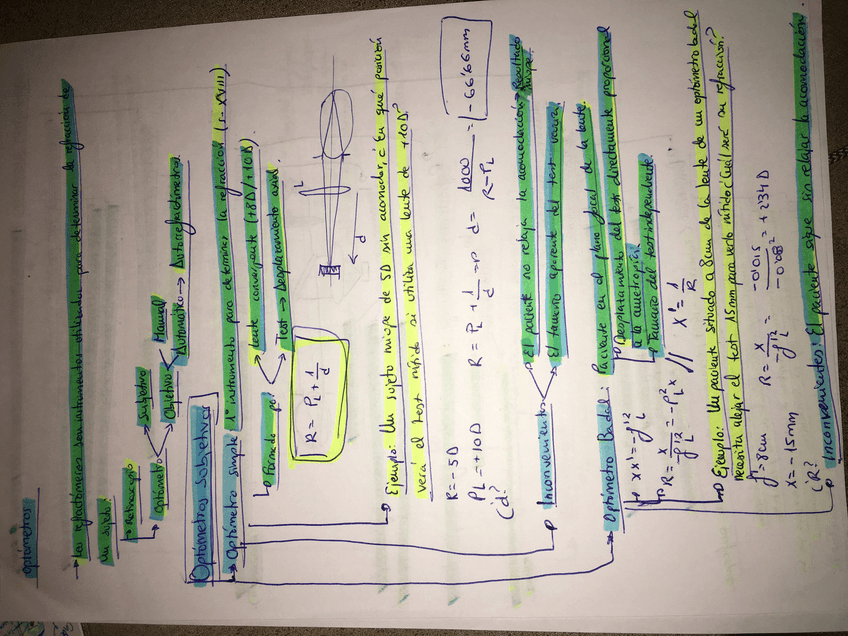 Optómetros
→ Los refractómeros son instrumentos utilizados para determinar la refracción de
un sujeto:
→ Retinoscopio
→ Optómetro
Subjetivo
Objetivo
Manual
Automático → Autorefractómetros
Optómetros Subjetivos
→ Optómetro simple: 1º instrumento para determinar la refracción (s. XVIII)
↳ Formado por:
→ Lente convergente (+8D/+10D)
→ Test → Desplazamiento axial
R = PL + 1/d
L
d
→ Ejemplo: Un sujeto miope de 5D sin acomodar, ¿en qué posición
verá el test nítido si utiliza una lente de +10D?
R = -5D
PL = +10D
¿d?
R = PL + 1/d → d = 1000/R-PL = -66'66mm
→ Inconvenientes
→ El paciente no relaja la acomodación → Resultado miope.
→ El tamaño aparente del test varía
→ Optómetro Badal: Paciente en el plano focal de la lente.
→ Desplazamiento del test directamente proporcional
a la ametropía
→ Tamaño del test independiente.
xx' = -f'L²
R = x/-f'L² = -PL² x // x' = 1/R
→ Ejemplo: Un paciente situado a 8cm de la lente de un optómetro badal
necesita alejar el test 15mm para verlo nítido ¿Cuál será su refracción?
f' = 8cm
x = -15mm
¿R?
R = x/-f'L² = -0'015/-0'08² = +2'34D
→ Inconvenientes: El paciente sigue sin relajar la acomodación.